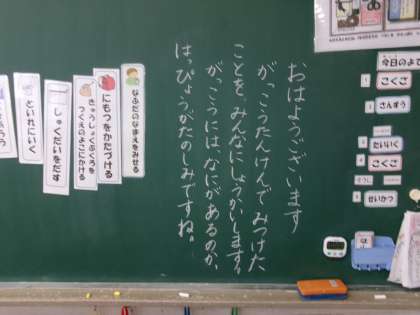 おはようございます
がっこうたんけんで みつけた
ことを、みんなにしょうかいします。
がっこうには、なにがあるのか、
はっぴょうがたのしみですね。
なふだのなまえをみせる
にもつをかたづける
きゅうしょくぶくろを
つくえのよこにかける
しゅくだいをだす
といれにいく
今日のよて
1
こくご
2
さんすう
3
たいいく
4
こくご
5
せいかつ